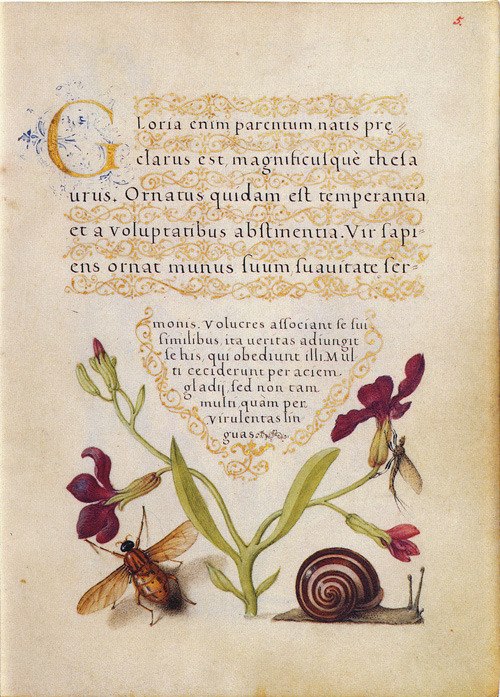 5.
Gloria enim parentum natis prę-
clarus est, magnificusquè thesa
urus. Ornatus quidam est temperantia
et a voluptatibus abstinentia. Vir sapi-
ens ornat munus suum suauitate ser-
monis. Volucres associant se sui
similibus, ita ueritas adiungit
se his, qui obediunt illi. Mul
ti ceciderunt per aciem
gladij, sed non tam
multi, quàm per
virulentas lin
guas.